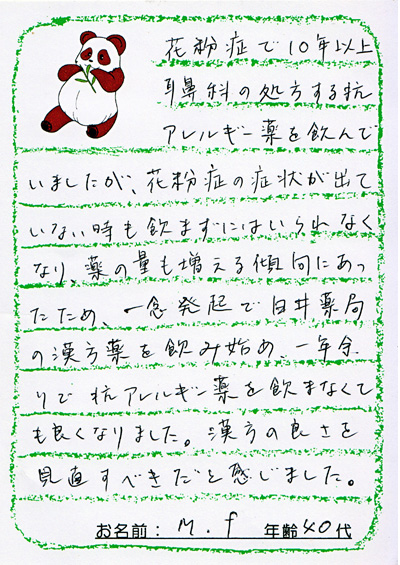 花粉症で10年以上
耳鼻科の処方する抗
アレルギー薬を飲んで
いましたが、花粉症の症状が出て
いない時も飲まずにはいられなく
なり、薬の量も増える傾向にあっ
たため、一念発起で臼井薬局
の漢方薬を飲み始め、一年余
りで抗アレルギー薬を飲まなくて
も良くなりました。漢方の良さを
見直すべきだと感じました。
お名前: M.f 年齢40代